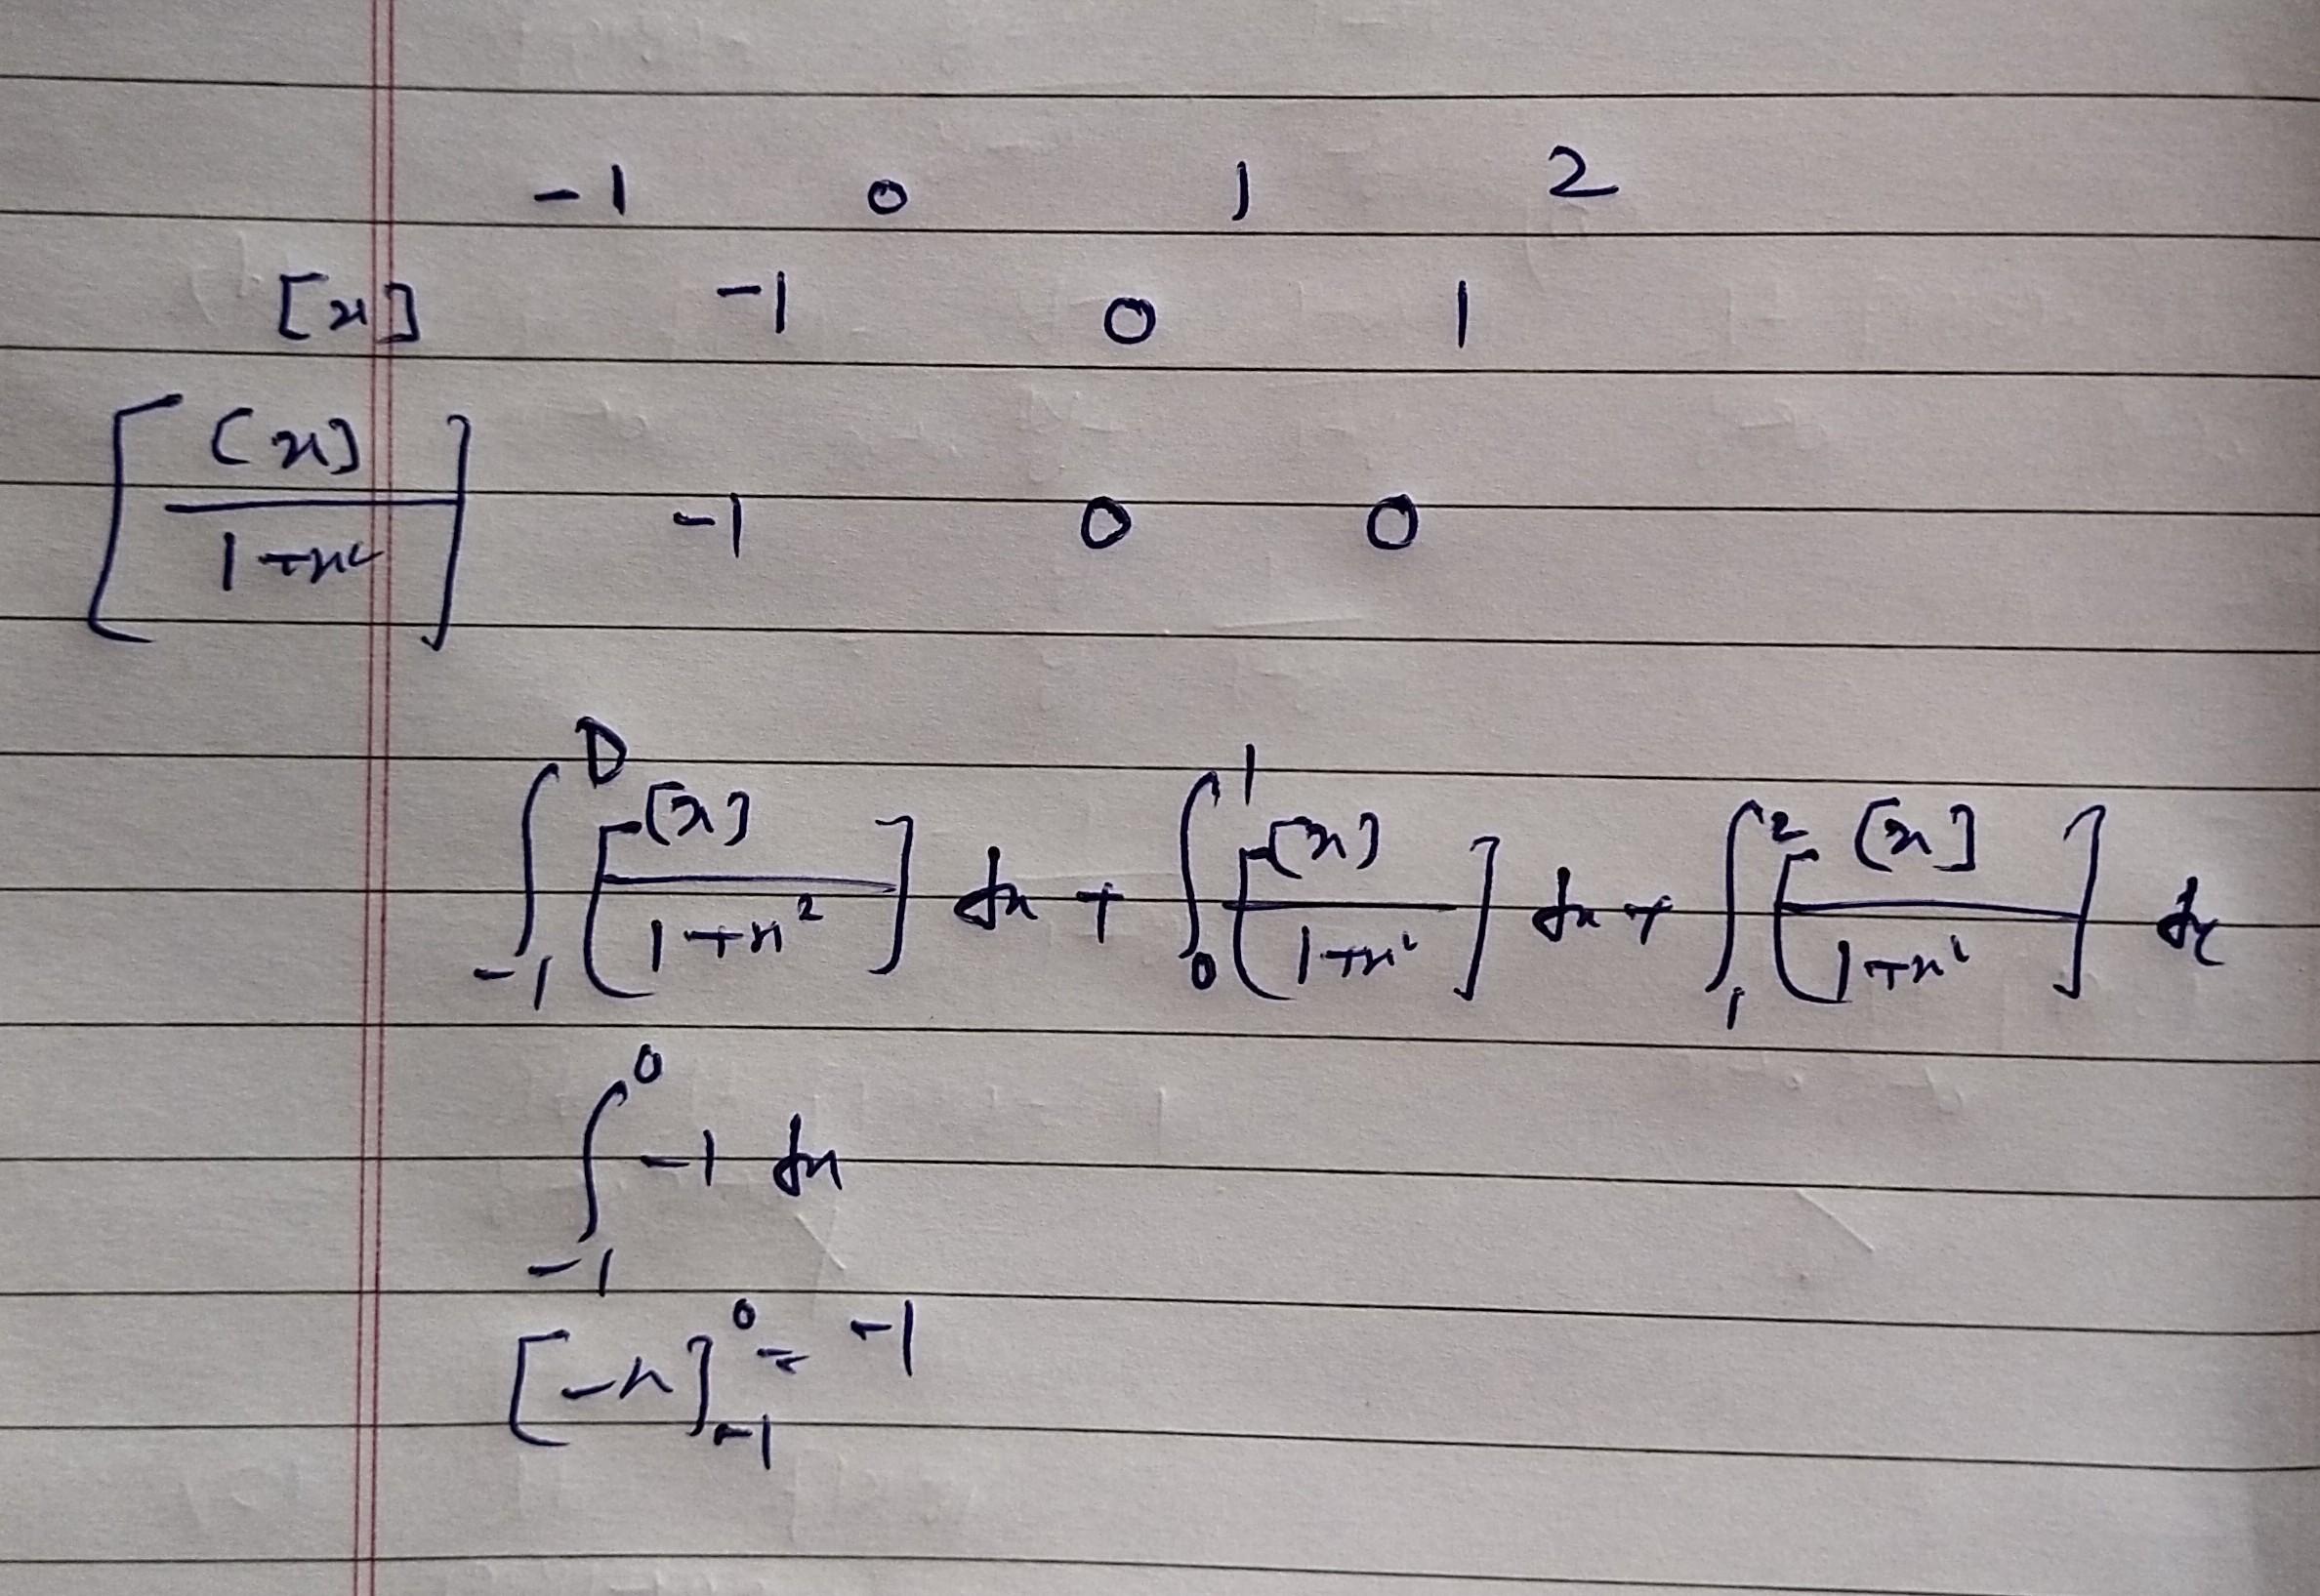 -1 0 1 2
[x] -1 0 1
[[x]/(1+x²)] -1 0 0
∫_{-1}^{0} [[x]/(1+x²)] dx + ∫_{0}^{1} [[x]/(1+x²)] dx + ∫_{1}^{2} [[x]/(1+x²)] dx
∫_{-1}^{0} -1 dx
[-x]_{-1}^{0} = -1